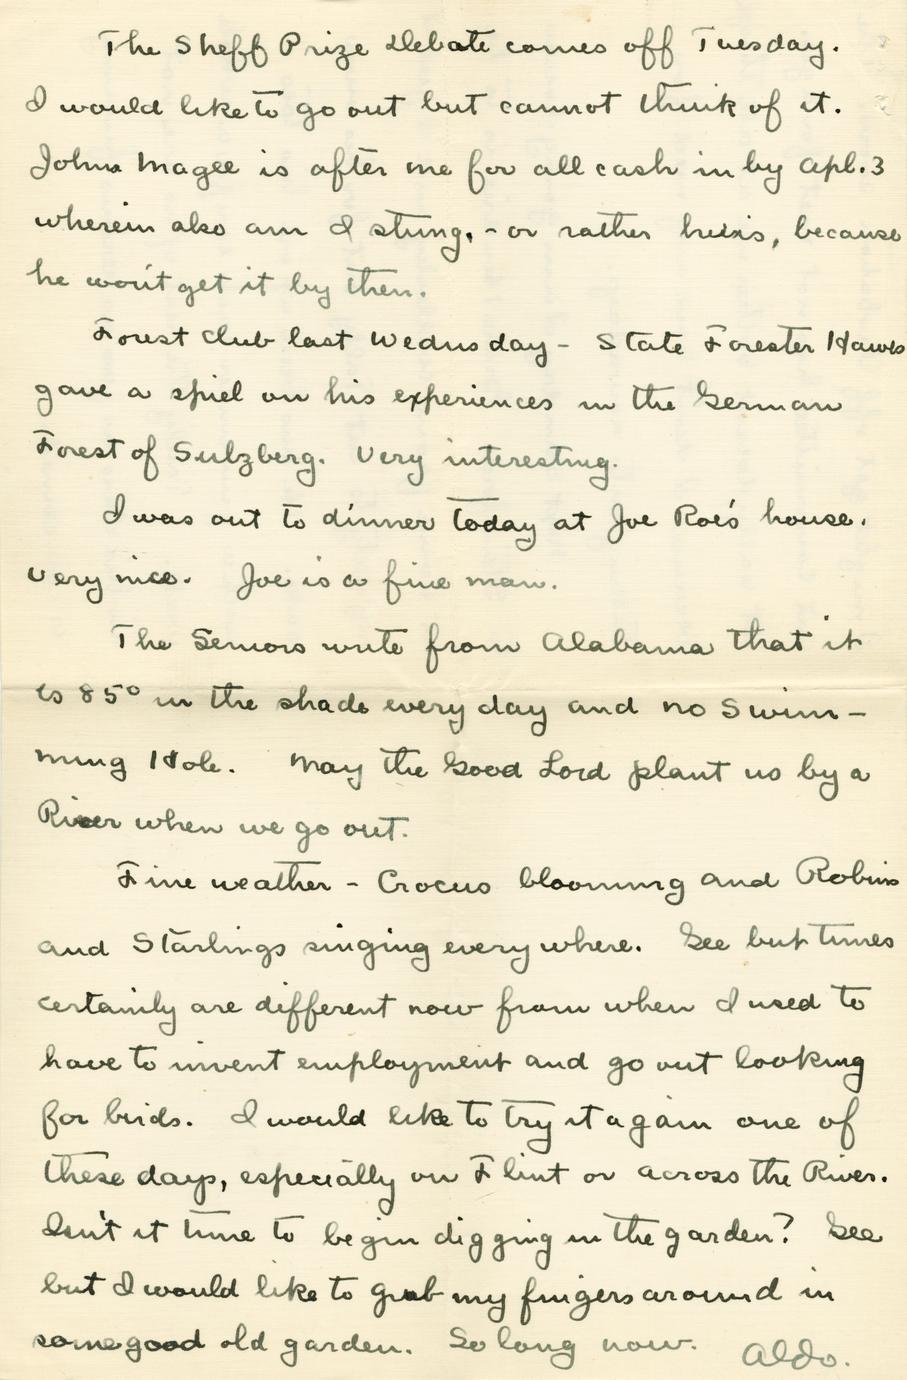 The Sheff Prize Debate comes off Tuesday.
I would like to go out but cannot think of it.
Johns Magee is after me for all cash in by Apl. 3
wherein also am I stung, - or rather he is, because
he won't get it by then.
Forest Club last Wednesday - State Forester Hawes
gave a spiel on his experiences in the German
Forest of Sulzberg. Very interesting.
I was out to dinner today at Joe Roe's house.
Very nice. Joe is a fine man.
The Seniors write from Alabama that it
is 85° in the shade every day and no Swim-
ming Hole. May the Good Lord plant us by a
River when we go out.
Fine weather - Crocus blooming and Robins
and Starlings singing everywhere. Gee but times
certainly are different now from when I used to
have to invent employment and go out looking
for birds. I would like to try it again one of
these days, especially on Flint or across the River.
Isn't it time to begin digging in the garden? Gee
but I would like to grub my fingers around in
some good old garden. So long now.
Aldo.